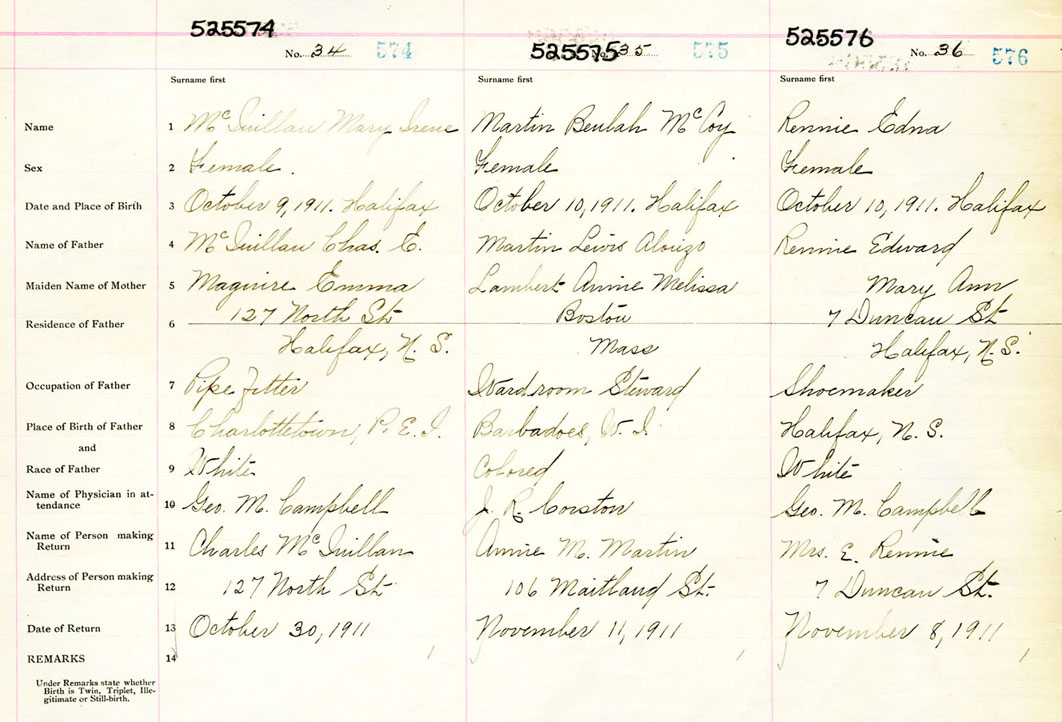 525574
No. 34 574
525575 35 575
525576
No. 36 576
Surname first
Surname first
Surname first
Name 1 McQuillan Mary Irene Martin Beulah McCoy Rennie Edna
Sex 2 Female. Female Female
Date and Place of Birth 3 October 9, 1911. Halifax October 10, 1911. Halifax October 10, 1911. Halifax
Name of Father 4 McQuillan Chas. E. Martin Lewis Alonzo Rennie Edward
Maiden Name of Mother 5 Maguire Emma Lambert Annie Melissa Mary Ann
Residence of Father 6 127 North St. Boston 7 Duncan St
Halifax, N. S. Mass Halifax, N. S.
Occupation of Father 7 Pipe fitter Wardroom Steward Shoemaker
Place of Birth of Father 8 Charlottetown, P. E. I. Barbadoes, W. I. Halifax, N. S.
and
Race of Father 9 White Colored White
Name of Physician in at-
tendance 10 Geo. M. Campbell J. R. Corston Geo. M. Campbell
Name of Person making
Return 11 Charles McQuillan Annie M. Martin Mrs. E. Rennie
Address of Person making
Return 12 127 North St. 106 Maitland St. 7 Duncan St.
Date of Return 13 October 30, 1911 November 11, 1911 November 8, 1911
REMARKS 14
Under Remarks state whether
Birth is Twin, Triplet, Ille-
gitimate or Still-birth.